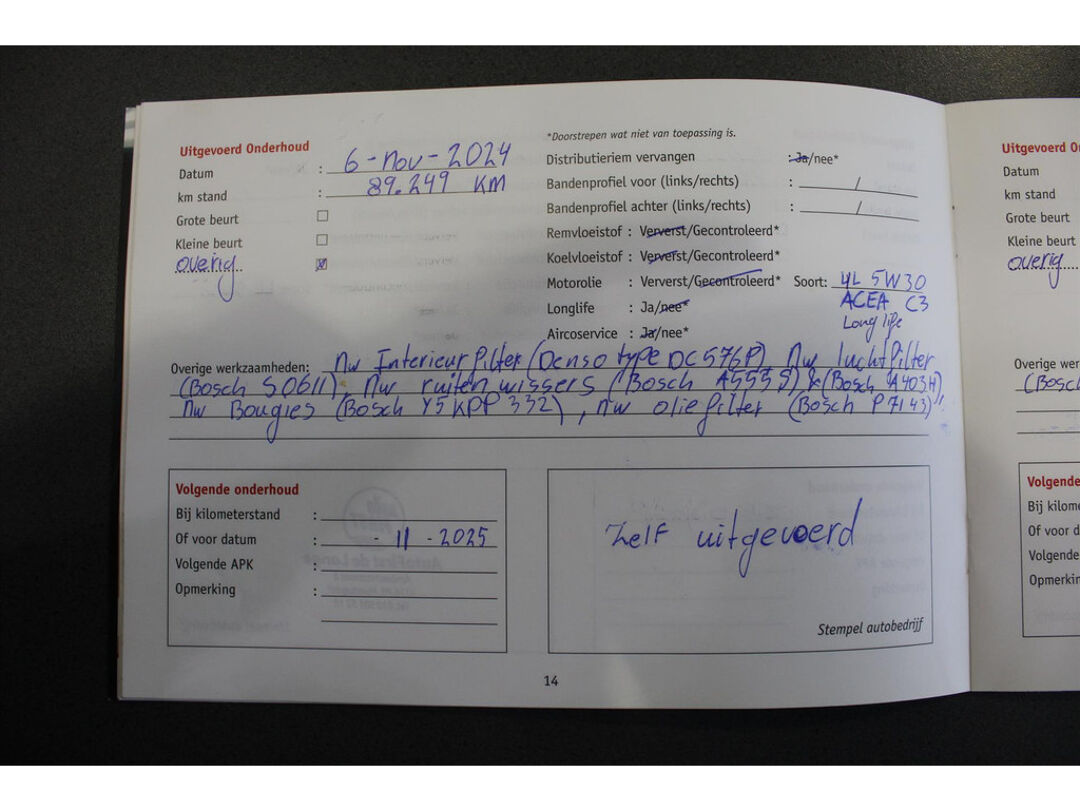 *Doorstrepen wat niet van toepassing is.
Uitgevoerd Onderhoud
Datum : 6-nov-2024
km stand : 89.249 KM
Grote beurt
Kleine beurt
overig
Distributieriem vervangen : Ja/nee*
Bandenprofiel voor (links/rechts) : /
Bandenprofiel achter (links/rechts) : /
Remvloeistof : Ververst/Gecontroleerd*
Koelvloeistof : Ververst/Gecontroleerd*
Motorolie : Ververst/Gecontroleerd* Soort: 4L 5W30
ACEA C3
Longlife : Ja/nee*
Long life
Aircoservice : Ja/nee*
Overige werkzaamheden: nw Interieurfilter (Denso type DC576P) nw luchtfilter
(Bosch S0611), nw ruitenwissers (Bosch A555S) & (Bosch A403H),
nw Bougies (Bosch Y5KPP332), nw oliefilter (Bosch P7143)
Volgende onderhoud
Bij kilometerstand :
Of voor datum : - 11 - 2025
Volgende APK :
Opmerking :
Zelf uitgevoerd
Stempel autobedrijf
14
Uitgevoerd O
Datum
km stand
Grote beurt
Kleine beurt
overig
Overige wer
(Bosc
Volgende
Bij kilom
Of voor d
Volgende
Opmerkin